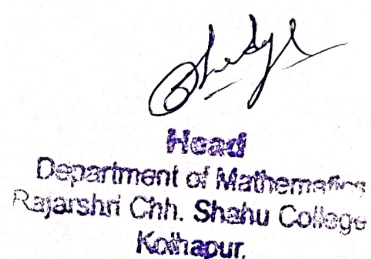 Head
Department of Mathematics
Rajarshri Chh. Shahu College
Kolhapur.